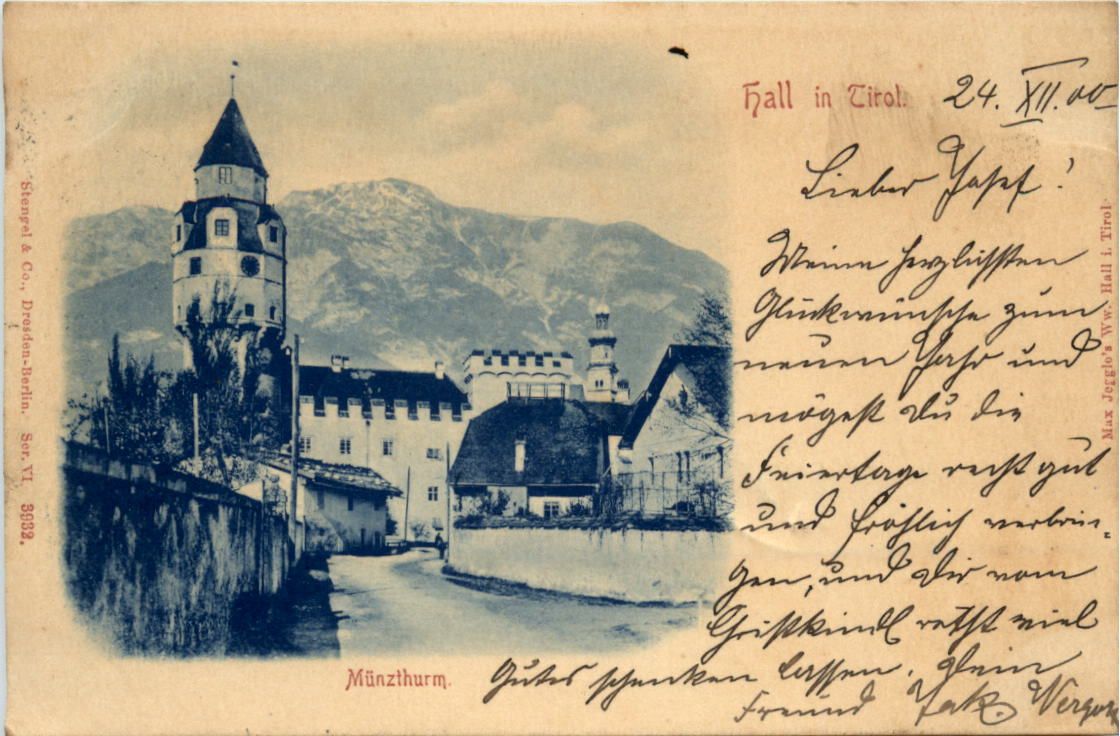 Hall in Tirol.
24. XII. 00
Lieber Josef!
Meine herzlichsten
Glückwünsche zum
neuen Jahr und
mögest du die
Feiertage recht gut
und fröhlich verbrin„
gen, und Dir vom
Christkindl recht viel
Gutes schenken lassen. Dein
Freund Jak.
Münzthurm.
Stengel & Co., Dresden-Berlin. Ser. VI. 3932.
Max Jeggle's Ww. Hall i. Tirol.